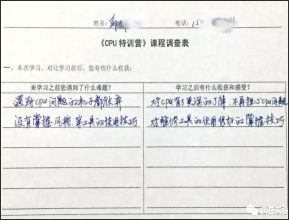 姓名: 电话: 15
《CPU特训营》课程调查表
一、本次学习，对比学习前后，您有些什么收获：
来学习之前您遇到了什么难题？ 学习之后有什么收获和感受？
遇到CPU问题的机子都放弃 对CPU有了更深的了解 不再怕了CPU问题
没有掌握问题 等工具的使用技巧 对维修工具的使用很好的掌握技巧